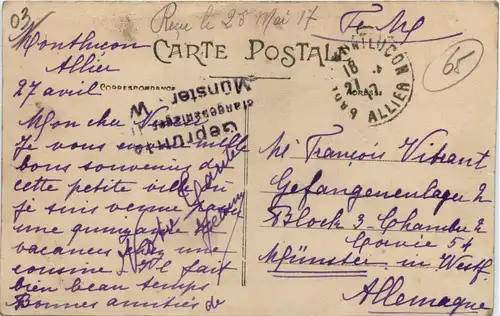 03
Reçu le 28 Mai 17
F. M.
CARTE POSTALE
CORRESPONDANCE
ADRESSE
MONTLUCON
ALLIER
65
Geprüft
Münster W
Montluçon
Allier
27 avril
Mon cher
Je vous envoie mille
bons souvenirs de
cette petite ville où
je suis venue passer
une quinzaine de
vacances chez une
cousine. Il fait
bien beau temps
Bonnes amitiés de
Mr François Vibrant
Gefangenenlager 2
Block 3 - Chambre 2
54
Münster in Westf.
Allemagne